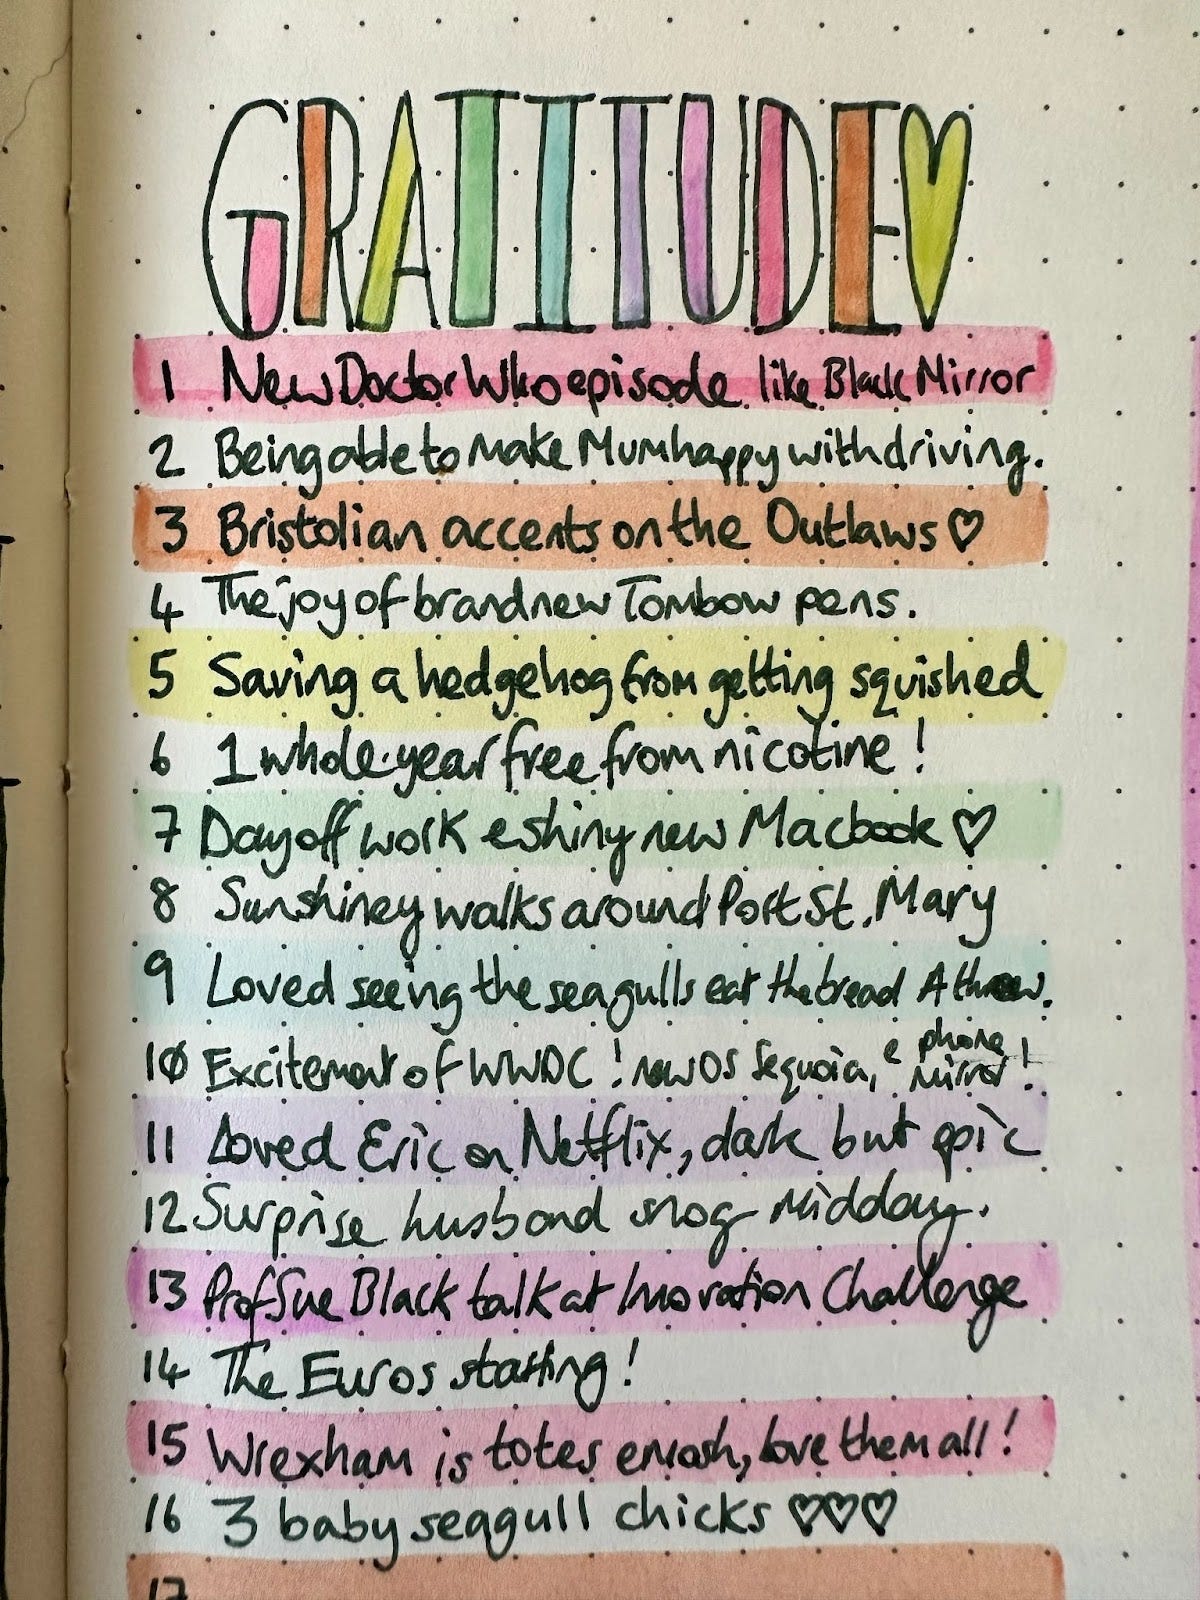 GRATITUDE♡
1 New Doctor Who episode like Black Mirror
2 Being able to make Mum happy with driving.
3 Bristolian accents on the Outlaws ♡
4 The joy of brand new Tombow pens.
5 Saving a hedgehog from getting squished
6 1 whole year free from nicotine!
7 Day off work & shiny new Macbook ♡
8 Sunshiney walks around Port St. Mary
9 Loved seeing the seagulls eat the bread A threw.
10 Excitement of WWDC! new OS Sequoia, & phone mirror!
11 Loved Eric on Netflix, dark but epic
12 Surprise husband snog midday.
13 Prof Sue Black talk at Innovation Challenge
14 The Euros starting!
15 Wrexham is totes emosh, love them all!
16 3 baby seagull chicks ♡♡♡
17